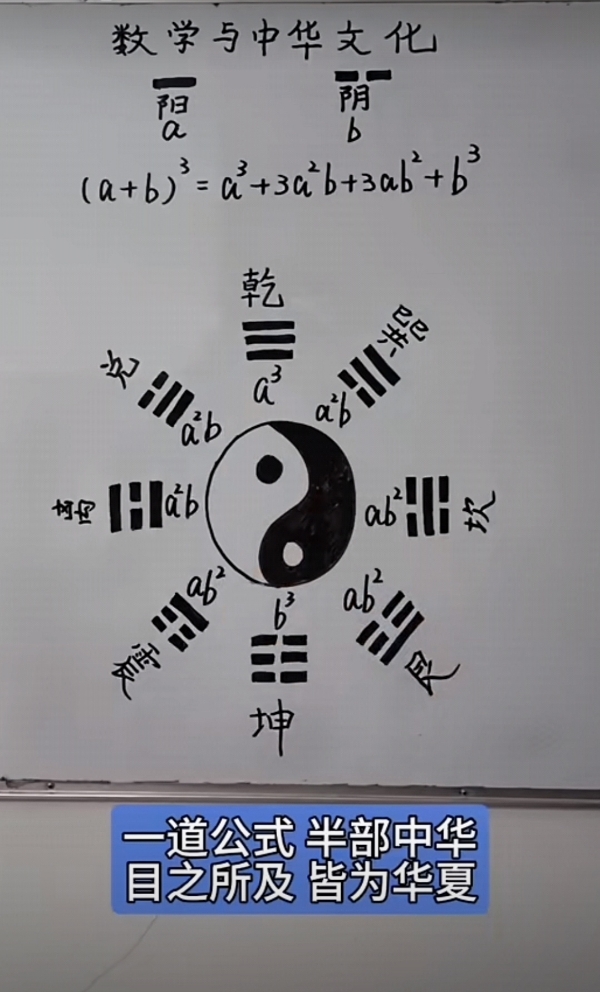 数学与中华文化
阳 阴
a b
(a+b)³=a³+3a²b+3ab²+b³
乾
a³
巽
a²b
兑
a²b
离
a²b
坎
ab²
震
ab²
艮
ab²
b³
坤
一道公式 半部中华
目之所及 皆为华夏